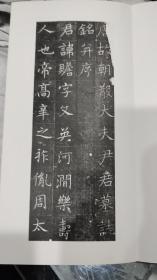 唐故朝散大夫尹君墓誌
銘并序
君諱瞻字文英河澗樂壽
人也帝高辛之祚胤周太